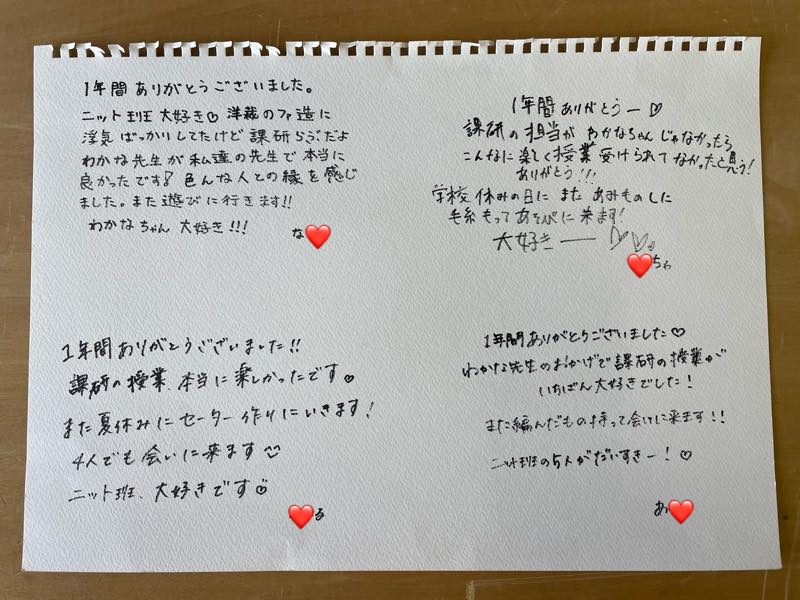 1年間ありがとうございました。
ニット班 大好き♡ 洋裁のファ造に
浮気ばっかりしてたけど課研らぶだよ
わかな先生が私達の先生で本当に
良かったです! 色んな人との縁を感じ
ました。また遊びに行きます!!
わかなちゃん 大好き!!!
な
1年間ありがとうー♡
課研の担当がわかなちゃんじゃなかったら
こんなに楽しく授業受けられてなかったと思う!
ありがとう!!!
学校休みの日にまたあみものしに
毛糸もってあそびに来ます!
大好き――♡♡
ちゎ
1年間ありがとうございました!!
課研の授業、本当に楽しかったです♡
また夏休みにセーター作りにいきます!
4人でも会いに来ます
ニット班、大好きです
る
1年間ありがとうございました♡
わかな先生のおかげで課研の授業が
いちばん大好きでした!
また編んだもの持って会いに来ます!!
ニット班の5人がだいすきー!♡
あ